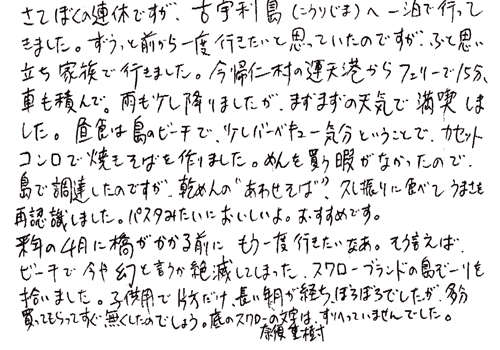 さてぼくの連休ですが、古宇利島(こうりじま)へ一泊で行って
きました。ずうっと前から一度行きたいと思っていたのですが、ふと思い
立ち家族で行きました。今帰仁村の運天港からフェリーで15分、
車も積んで。雨も少し降りましたが、まずまずの天気で満喫しま
した。昼食は島のビーチで、少しバーベキュー気分ということで、カセット
コンロで焼きそばを作りました。めんを買う暇がなかったので、
島で調達したのですが、乾めんの"あわせそば"、久し振りに食べて、うまさを
再認識しました。パスタみたいにおいしいよ。おすすめです。
来年の4月に橋がかかる前に もう一度行きたいなあ。そう言えば、
ビーチで今や幻と言うか絶滅してしまった、スワローブランドの島ぞーりを
拾いました。子供用で片方だけ、長い年月が経ち、ぼろぼろでしたが、多分
買ってもらってすぐ無くしたのでしょう。底のスワローの文字は、すりへっていませんでした。
奈須重樹